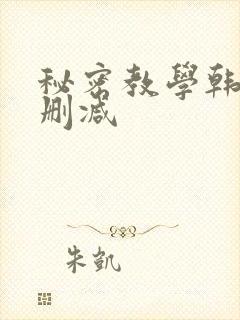 秘密教學韩
删减
朱凯